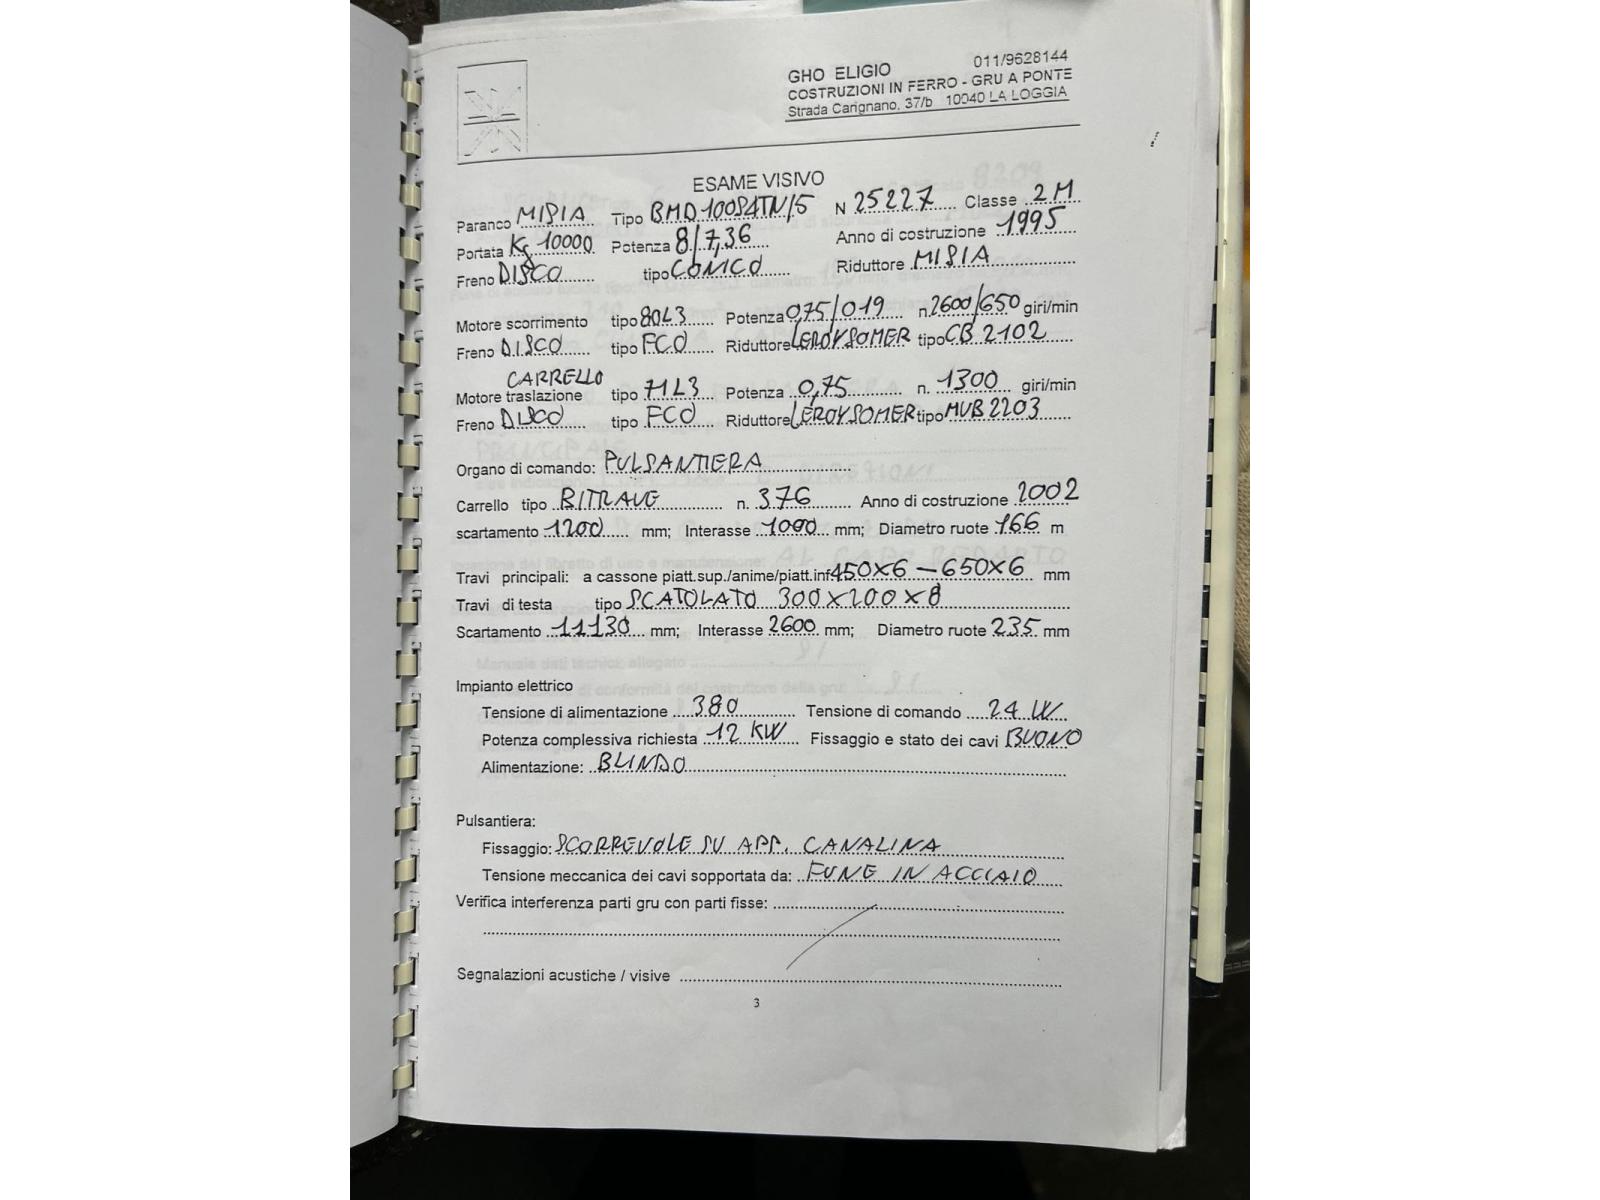 GHO ELIGIO 011/9628144
COSTRUZIONI IN FERRO - GRU A PONTE
Strada Carignano, 37/b 10040 LA LOGGIA
ESAME VISIVO
Paranco MISIA Tipo BMD1008ATN/5 N 25227 Classe 2M
Portata Kg 10000 Potenza 8/7,36 Anno di costruzione 1995
Freno DISCO tipo CONICO Riduttore MISIA
Motore scorrimento tipo 80L3 Potenza 0,75/019 n. 2600/650 giri/min
Freno DISCO tipo FCO Riduttore LEROYSOMER tipo CB 2102
CARRELLO
Motore traslazione tipo 71L3 Potenza 0,75 n. 1300 giri/min
Freno DISCO tipo FCO Riduttore LEROYSOMER tipo MUB2203
Organo di comando: PULSANTIERA
Carrello tipo BITRAVE n. 376 Anno di costruzione 2002
scartamento 1200 mm; Interasse 1000 mm; Diametro ruote 166 m
Travi principali: a cassone piatt.sup./anime/piatt.inf 450X6 - 650X6 mm
Travi di testa tipo SCATOLATO 300X200X8
Scartamento 11130 mm; Interasse 2600 mm; Diametro ruote 235 mm
Impianto elettrico
Tensione di alimentazione 380 Tensione di comando 24
Potenza complessiva richiesta 12 KW Fissaggio e stato dei cavi BUONO
Alimentazione: BLINDO
Pulsantiera:
Fissaggio: SCORREVOLE SU APP. CANALINA
Tensione meccanica dei cavi sopportata da: FUNE IN ACCIAIO
Verifica interferenza parti gru con parti fisse:
Segnalazioni acustiche / visive
3